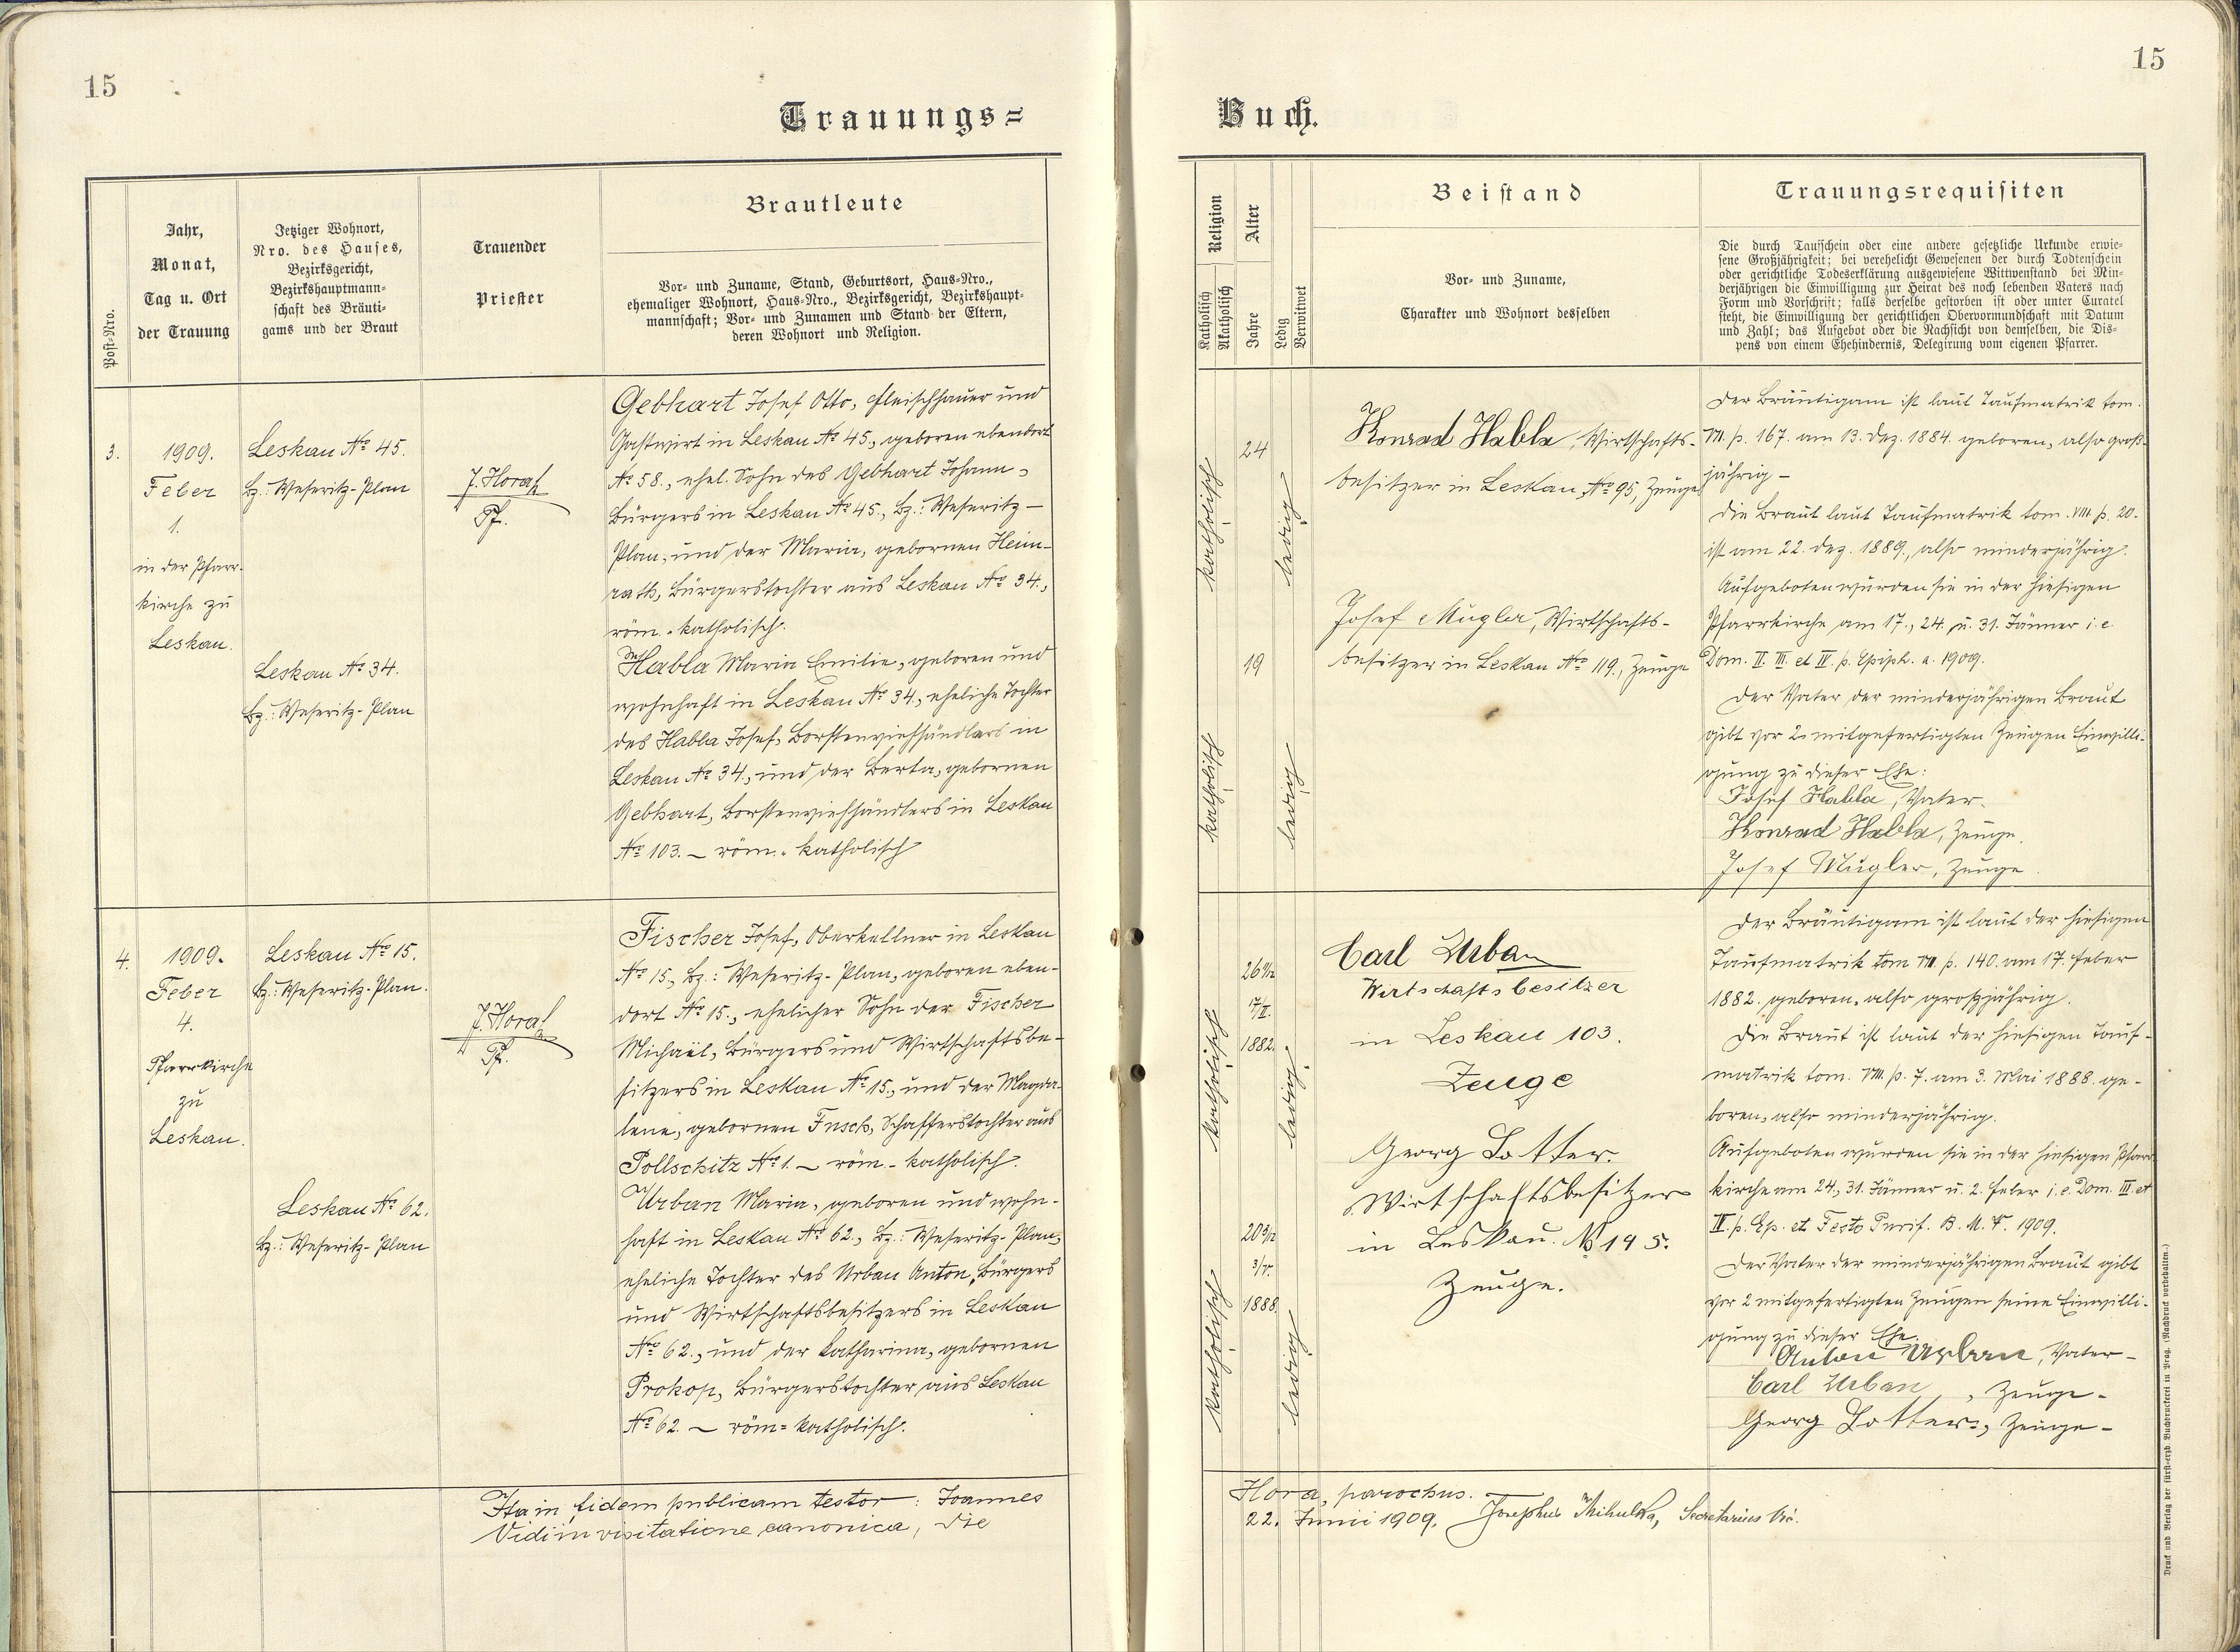 15
15
Trauungs=
Buch.
Post-Nro.
Jahr,
Monat,
Tag u. Ort
der Trauung
Jetziger Wohnort,
Nro. des Hauses,
Bezirksgericht,
Bezirkshauptmann-
schaft des Bräuti-
gams und der Braut
Trauender
Priester
Brautleute
Vor- und Zuname, Stand, Geburtsort, Haus-Nro.,
ehemaliger Wohnort, Haus-Nro., Bezirksgericht, Bezirkshaupt-
mannschaft; Vor- und Zunamen und Stand der Eltern,
deren Wohnort und Religion.
Religion
Katholisch
Akatholisch
Alter
Jahre
Ledig
Verwitwet
Beistand
Vor- und Zuname,
Charakter und Wohnort desselben
Trauungsrequisiten
Die durch Taufschein oder eine andere gesetzliche Urkunde erwie-
sene Großjährigkeit; bei verehelicht Gewesenen der durch Todtenschein
oder gerichtliche Todeserklärung ausgewiesene Wittwenstand bei Min-
derjährigen die Einwilligung zur Heirat des noch lebenden Vaters nach
Form und Vorschrift; falls derselbe gestorben ist oder unter Curatel
steht, die Einwilligung der gerichtlichen Obervormundschaft mit Datum
und Zahl; das Aufgebot oder die Nachsicht von demselben, die Dis-
pens von einem Ehehindernis, Delegirung vom eigenen Pfarrer.
3.
1909.
Feber
1.
in der Pfarr-
kirche zu
Leskau.
Leskau No 45.
Bz.: Weseritz-Plan
Leskau No 34.
Bz.: Weseritz-Plan
J. Hora
Pf.
Gebhart Josef Otto, Fleischhauer und
Gastwirt in Leskau No 45., geboren ebendort
No 58., ehel. Sohn des Gebhart Johann,
Bürgers in Leskau No 45., Bz.: Weseritz-
Plan, und der Maria, gebornen Heim-
rath, Bürgerstochter aus Leskau No 34.,
röm.-katholisch.
Habla Maria Emilie, geboren und
wohnhaft in Leskau No 34., eheliche Tochter
des Habla Josef, Borstenviehhändlers in
Leskau No 34., und der Berta, gebornen
Gebhart, Borstenviehhändlers in Leskau
No 103. – röm.-katholisch
katholisch
24
ledig
katholisch
19
ledig
Konrad Habla, Wirtschafts-
besitzer in Leskau No 95, Zeuge
Josef Mugler, Wirtschafts-
besitzer in Leskau No 119., Zeuge
Der Bräutigam ist laut Taufmatrik tom.
VII. p. 167. am 13. Dez. 1884. geboren, also groß-
jährig –
Die Braut laut Taufmatrik tom. VIII. p. 20.
ist am 22. Dez. 1889., also minderjährig.
Aufgeboten wurden sie in der hiesigen
Pfarrkirche am 17., 24. u. 31. Jänner i. e.
Dom. II. III. et IV. p. Epiph. a. 1909.
Der Vater der minderjährigen Braut
gibt vor 2 mitgefertigten Zeugen Einwilli-
gung zu dieser Ehe:
Josef Habla, Vater.
Konrad Habla, Zeuge.
Josef Mugler, Zeuge.
4.
1909.
Feber
4.
Pfarrkirche
zu
Leskau.
Leskau No 15.
Bz.: Weseritz-Plan.
Leskau No 62.
Bz.: Weseritz-Plan
J. Hora
Pf.
Fischer Josef, Oberkellner in Leskau
No 15., Bz.: Weseritz-Plan, geboren eben-
dort No 15., ehelicher Sohn der Fischer
Michaël, Bürgers und Wirtschaftsbe-
sitzers in Leskau No 15., und der Magda-
lene, gebornen Fusch, Schafferstochter aus
Pollschitz No 1. – röm.-katholisch.
Urban Maria, geboren und wohn-
haft in Leskau No 62., Bz.: Weseritz-Plan,
eheliche Tochter des Urban Anton, Bürgers
und Wirtschaftsbesitzers in Leskau
No 62., und der Katharina, gebornen
Prokop, Bürgerstochter aus Leskau
No 62. – röm=katholisch.
katholisch
26 11/12
17/II.
1882.
ledig
katholisch
20 9/12
3/V.
1888.
ledig
Carl Urban
Wirtschaftsbesitzer
in Leskau 103.
Zeuge
Georg Lotter.
Wirtschaftsbesitzer
in Leskau. No 145.
Zeuge.
Der Bräutigam ist laut der hiesigen
Taufmatrik tom VII. p. 140. am 17. Feber
1882. geboren, also großjährig.
Die Braut ist laut der hiesigen Tauf-
matrik tom. VIII. p. 7. am 3. Mai 1888. ge-
boren, also minderjährig.
Aufgeboten wurden sie in der hiesigen Pfarr-
kirche am 24., 31. Jänner u. 2. Feber i. e. Dom. III. et
IV. p. Ep. et Festo Purif. B. M. V. 1909.
Der Vater der minderjährigen Braut gibt
vor 2 mitgefertigten Zeugen seine Einwilli-
gung zu dieser Ehe.
Anton Urban, Vater –
Carl Urban, Zeuge –
Georg Lotter, Zeuge –
Ita in fidem publicam testor: Joannes Hora, parochus.
Vidi in visitatione canonica, die 22. Junii 1909. Josephus Mikulka, Secretarius Vic.
Druck und Verlag der fürst-erzb. Buchdruckerei in Prag. (Nachdruck vorbehalten.)